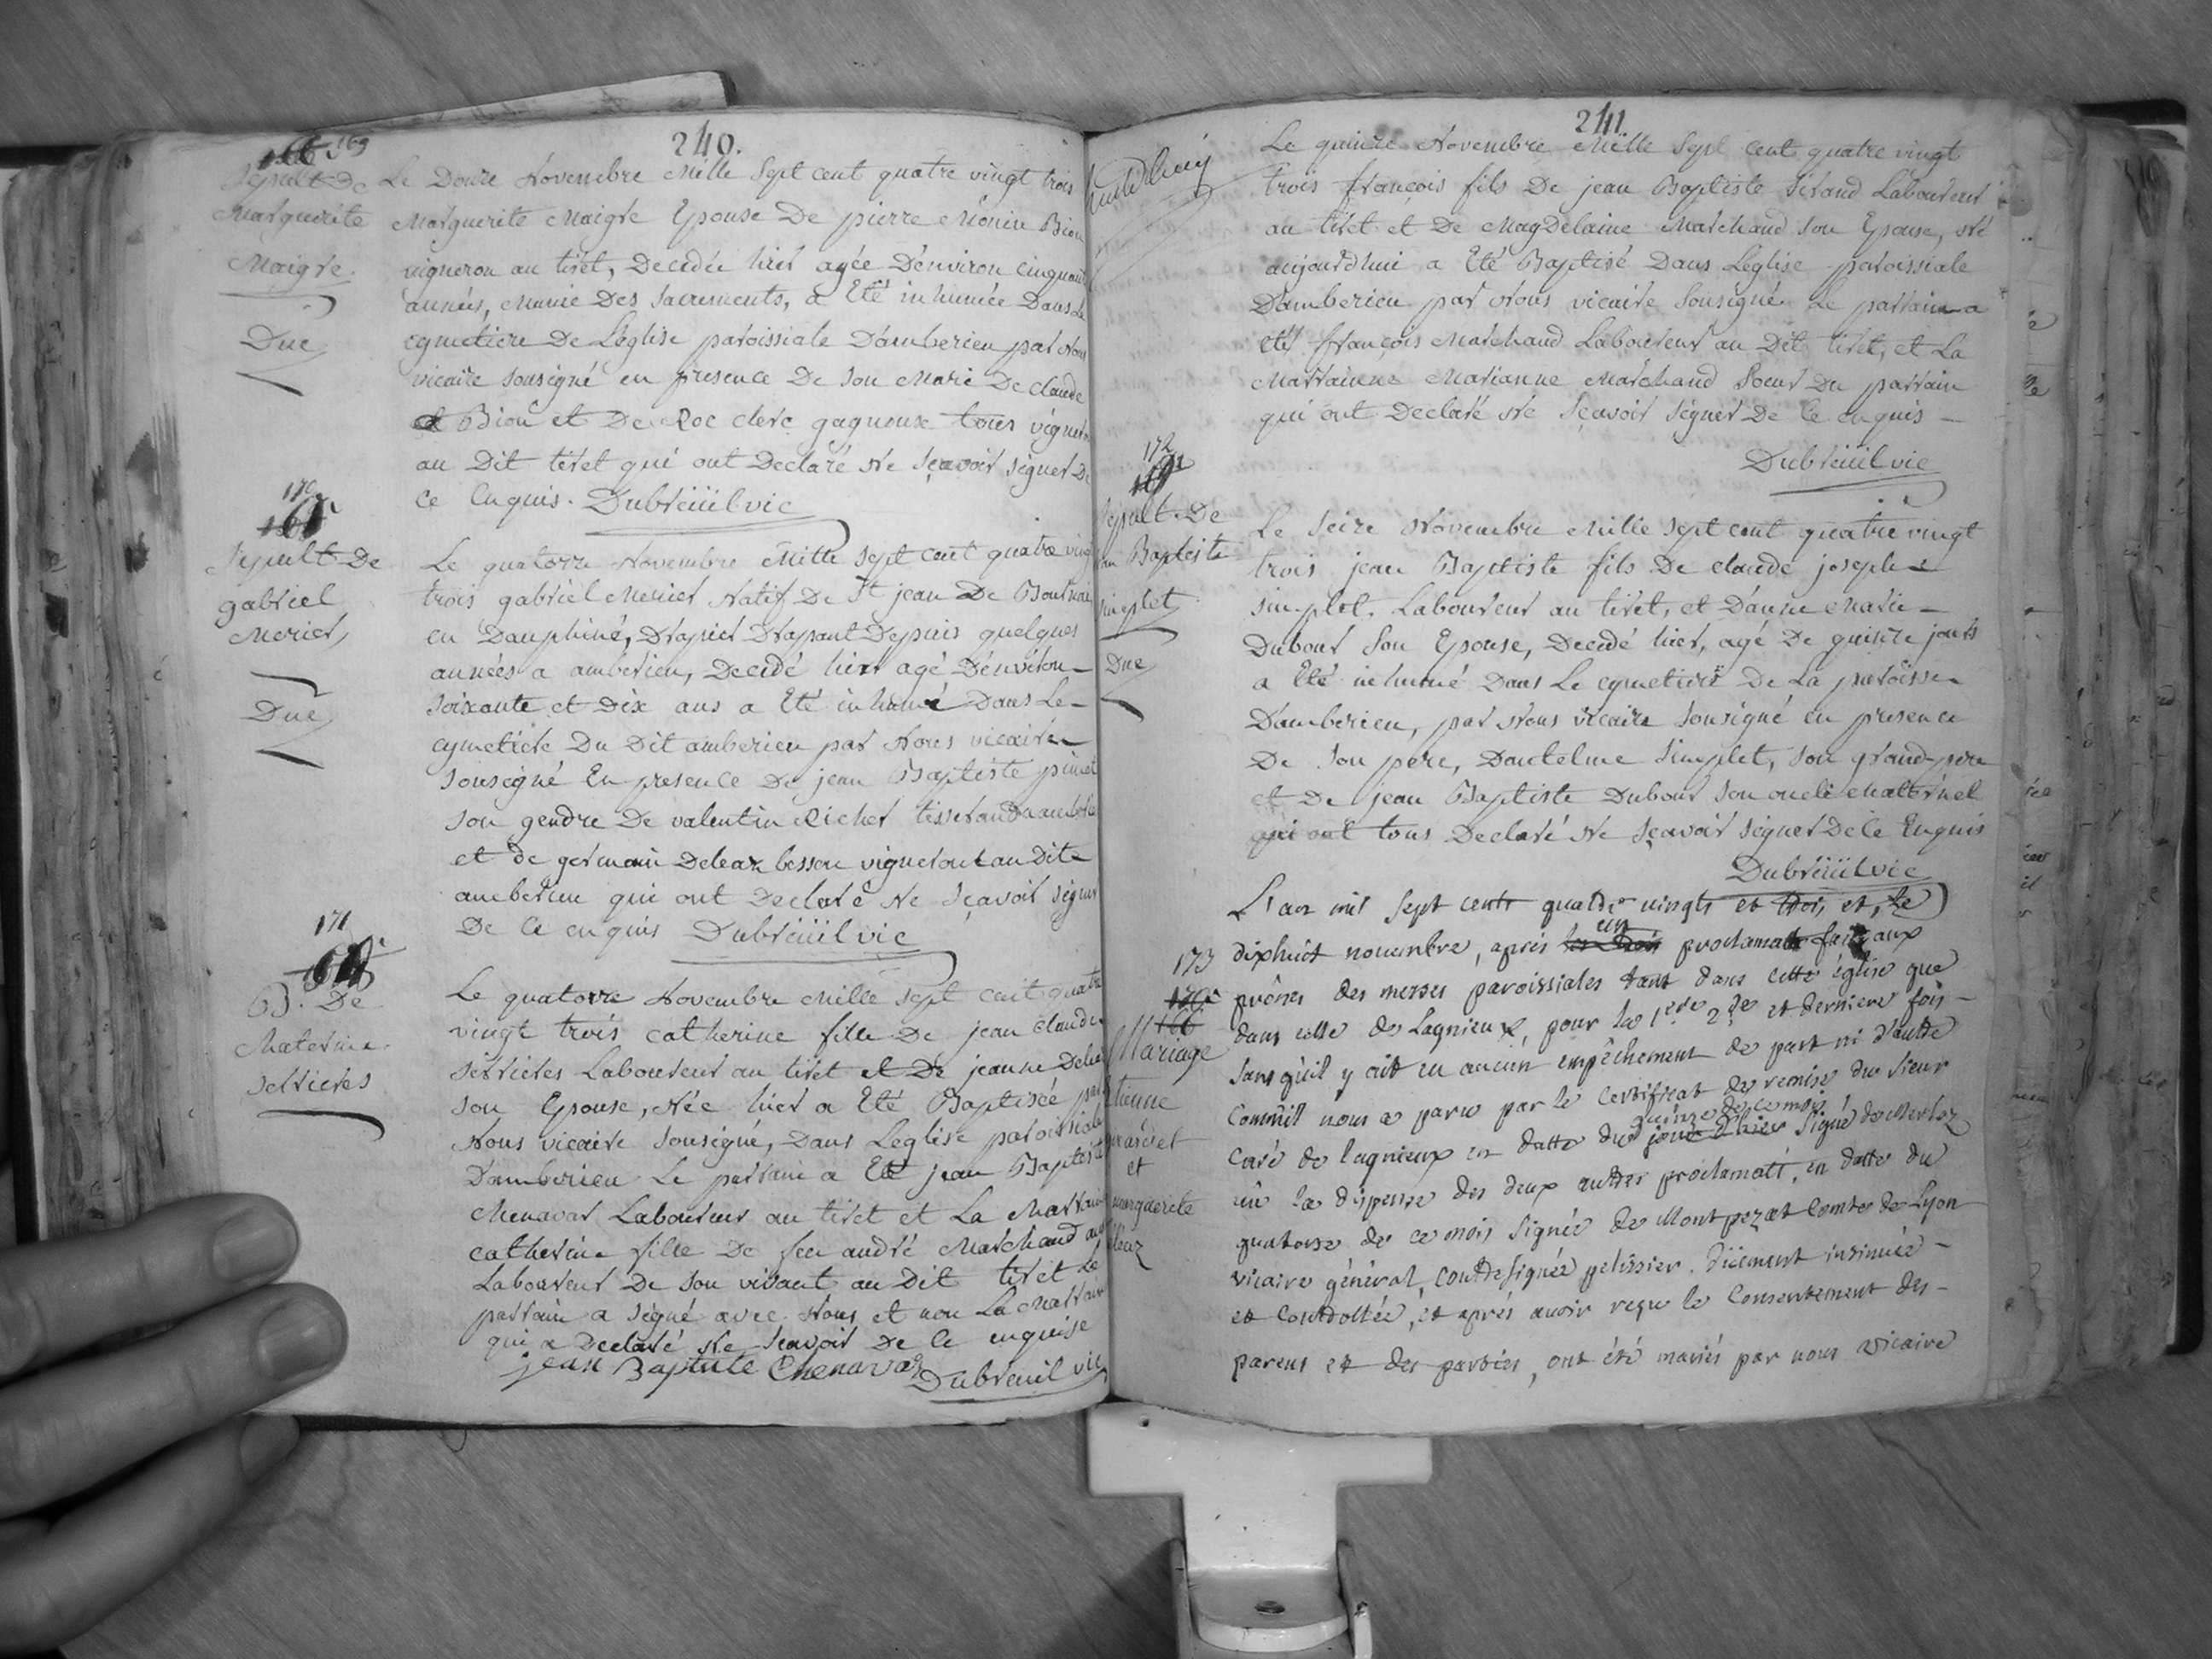 240.
169
Sepult De
Marguerite
Maigre
Due
Le Douze Novembre Mille Sept cent quatre vingt trois
Marguerite Maigre Epouse De pierre Monin Bion
vigneron au tiret, Decedée hier agée D'environ cinquante
années, Munie Des Sacrements, a Eté inhumée Dans Le
cymetiere De Leglise paroissiale D'amberieu par Nous
vicaire Sousigné en presence De Son Mari De claude
Bion et De Roc clerc gagnoux tous vigneron
au Dit tiret qui ont Declaré Ne Sçavoir Signer De
Ce Enquis. Dubreüil vic
170
Sepult De
gabriel
Merier
Due
Le quatorze Novembre Mille Sept cent quatre vingt
trois gabriel Merier Natif De St jean De Bournai
en Dauphiné, Drapier Drapant Depuis quelques
années a amberieu, Decedé hier agé D'environ
Soixante et Dix ans a Eté inhumé Dans Le
cymetiere Du Dit amberieu par Nous vicaire
Sousigné En presence De jean Baptiste
Son gendre De valentin Richer tisserand
et de germain Deleaz besson vigneron au Dit
amberieu qui ont Declaré Ne Sçavoir Signer
De Ce enquis Dubreüil vic
171
B. De
Servieres
Le quatorze Novembre Mille Sept cent quatre
vingt trois catherine fille De jean claude
Servieres Laboureur au tiret et De jeanne
Son Epouse, Née hier a Eté Baptisée par
Nous vicaire Sousigné, Dans Leglise paroissiale
D'amberieu Le parrain a Eté jean Baptiste
Chenavar Laboureur au tiret et La Marraine
catherine fille De feu andré Marchand
Laboureur De Son vivant au Dit tiret Le
parrain a Signé avec Nous et non La Marraine
qui a Declaré Ne Sçavoir De Ce enquise
jean Baptiste Chenavaz Dubreuil vic
241.
Le quinze Novembre Mille Sept cent quatre vingt
trois françois fils De jean Baptiste Sirand Laboureur
au tiret et De MagDelaine Marchand Son Epouse, Né
aujourdhui a Eté Baptisé Dans Leglise paroissiale
D'amberieu par Nous vicaire Sousigné Le parrain a
eté françois Marchand Laboureur au Dit tiret, et La
Marraine Marianne Marchand Soeur Du parrain
qui ont Declaré Ne Sçavoir Signer De Ce enquis
Dubreüil vic
172
Sepult. De
Baptiste
Simplet
Due
Le Seize Novembre Mille Sept cent quatre vingt
trois jean Baptiste fils De claude joseph
Simplet. Laboureur au tiret, et D'anne Marie
Dubour Son Epouse, Decedé hier, agé De quinze jours
a Eté inhumé Dans Le cymetiere De La paroisse
D'amberieu, par Nous vicaire Sousigné en presence
De Son pere, D'antelme Simplet, Son grand-pere
et De jean Baptiste Dubour Son oncle Maternel
qui ont tous Declaré Ne Sçavoir Signer De Ce Enquis
Dubreüil vic
173
Mariage
et
marguerite
L'an mil Sept cents quatre vingts et trois, et, le
dixhuit novembre, après un proclamat fait aux
prônes des messes paroissiales tant dans cette église que
dans celle de Lagnieux, pour la 1ere 2de et derniere fois
Sans qu'il y ait eu aucun empêchement de part ni d'autre
comme il nous a paru par le certificat de remise du Sieur
curé de lagnieux en datte du quinze de ce mois jour d'hier Signé
vû la dispense des deux autres proclamats, en datte du
quatorze de ce mois Signée de Montpezat Comte de Lyon
vicaire général, Contresignée pelissier. Düement insinuée
et Controllée, et après avoir reçu le Consentement des
parens et des parties, ont été mariés par nous vicaire